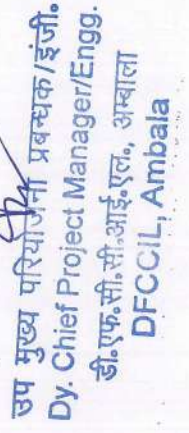 उप मुख्य परियोजना प्रबन्धक/इंजी.
Dy. Chief Project Manager/Engg.
डी.एफ.सी.सी.आई.एल., अम्बाला
DFCCIL, Ambala